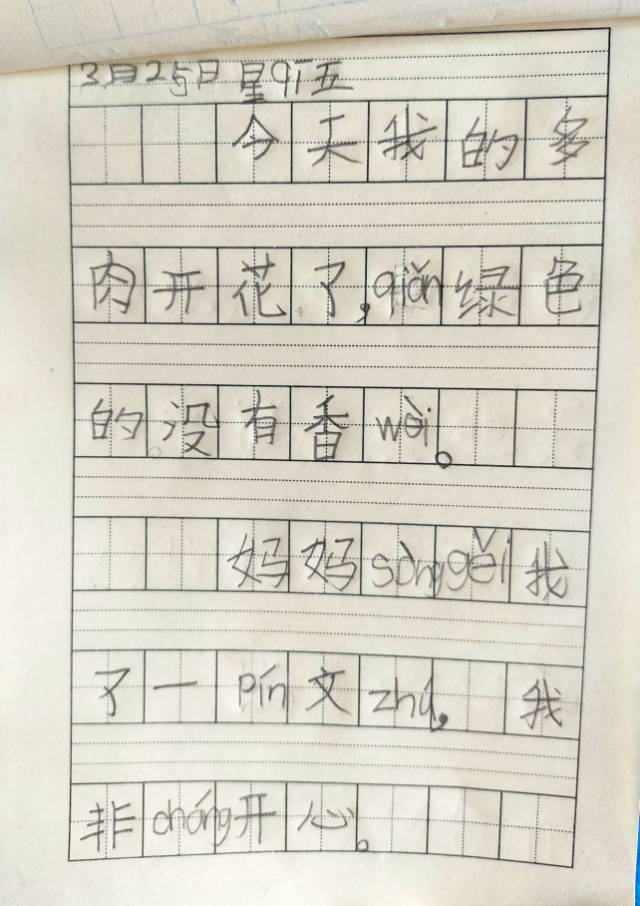 3月25日 星qī五
今天我的多
肉开花了,qiǎn绿色
的,没有香wèi。
妈妈sònggěi我
了一pín文zhú,我
非cháng开心。